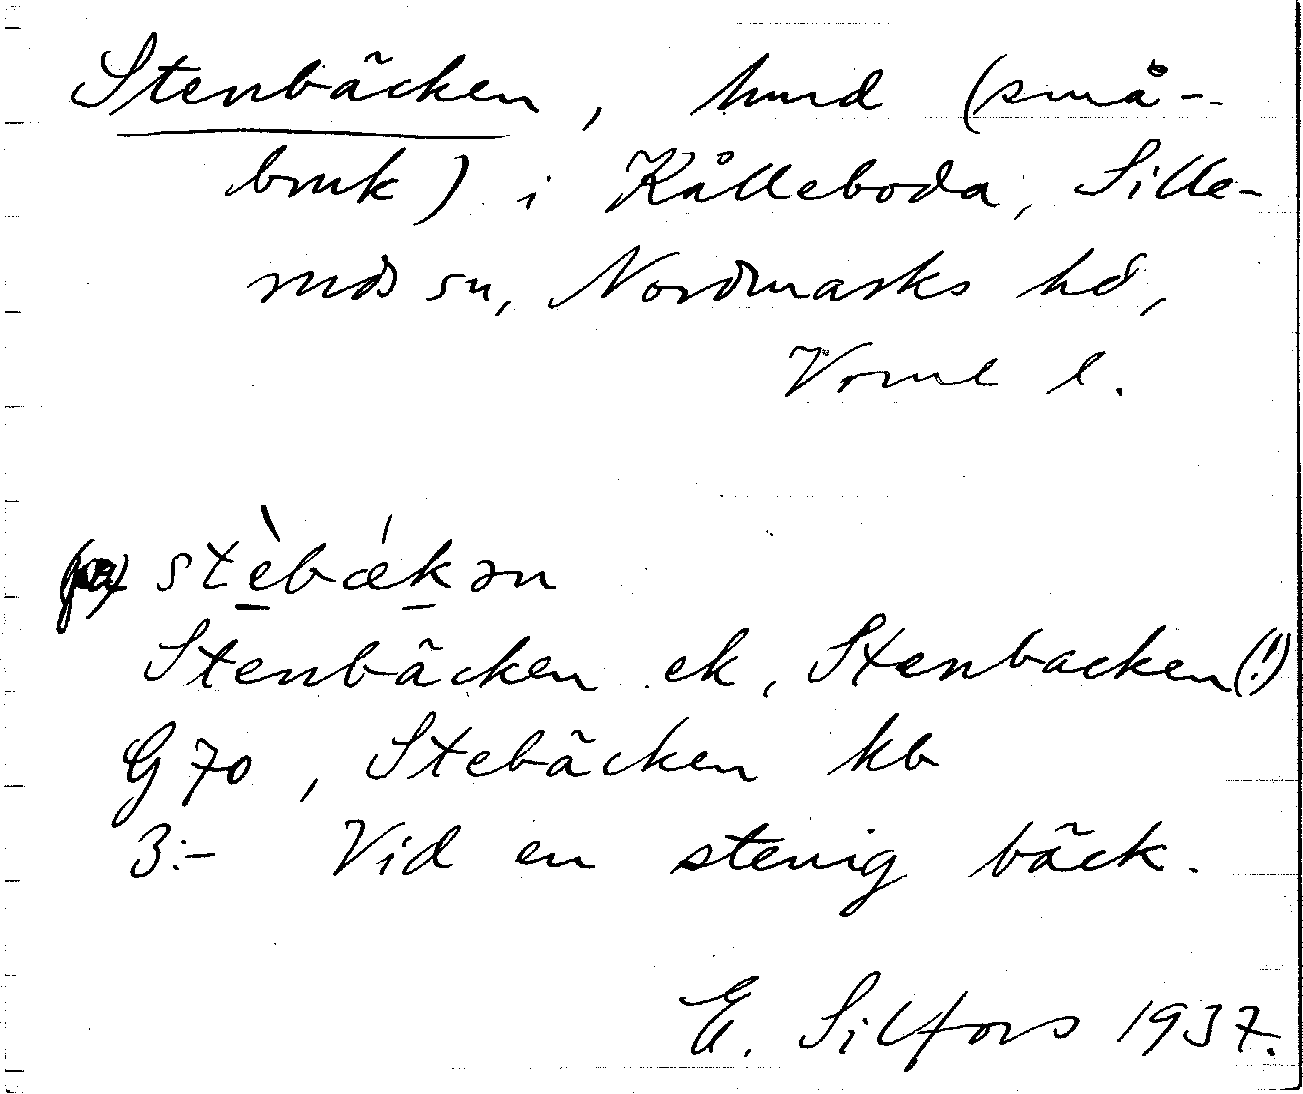 Stenbäcken, hmd (små-
bruk) i Kålleboda, Sille-
ruds sn, Nordmarks hd,
Vrml l.
(på) stèbǽkən
Stenbäcken ek, Stenbacken (!)
G70, Stebäcken kb
3:- Vid en stenig bäck.
E. Silfors 1937.